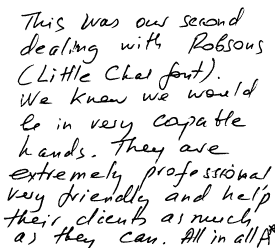 This was our second
dealing with Robsons
(Little Chalfont).
We knew we would
be in very capable
hands. They are
extremely professional
very friendly and help
their clients as much
as they can. All in all A*